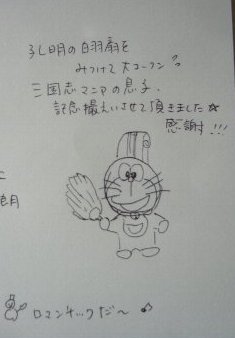 孔明の白羽扇を
みつけて大コーフン!!
三国志マニアの息子、
記念撮えいさせて頂きました☆
感謝!!!
月
ロマンチックだ〜♪